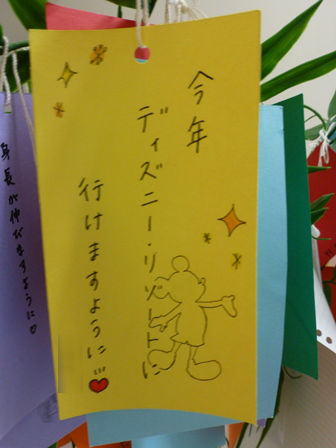 今年
ディズニー・リゾートに
行けますように…
身長が伸びますように♡